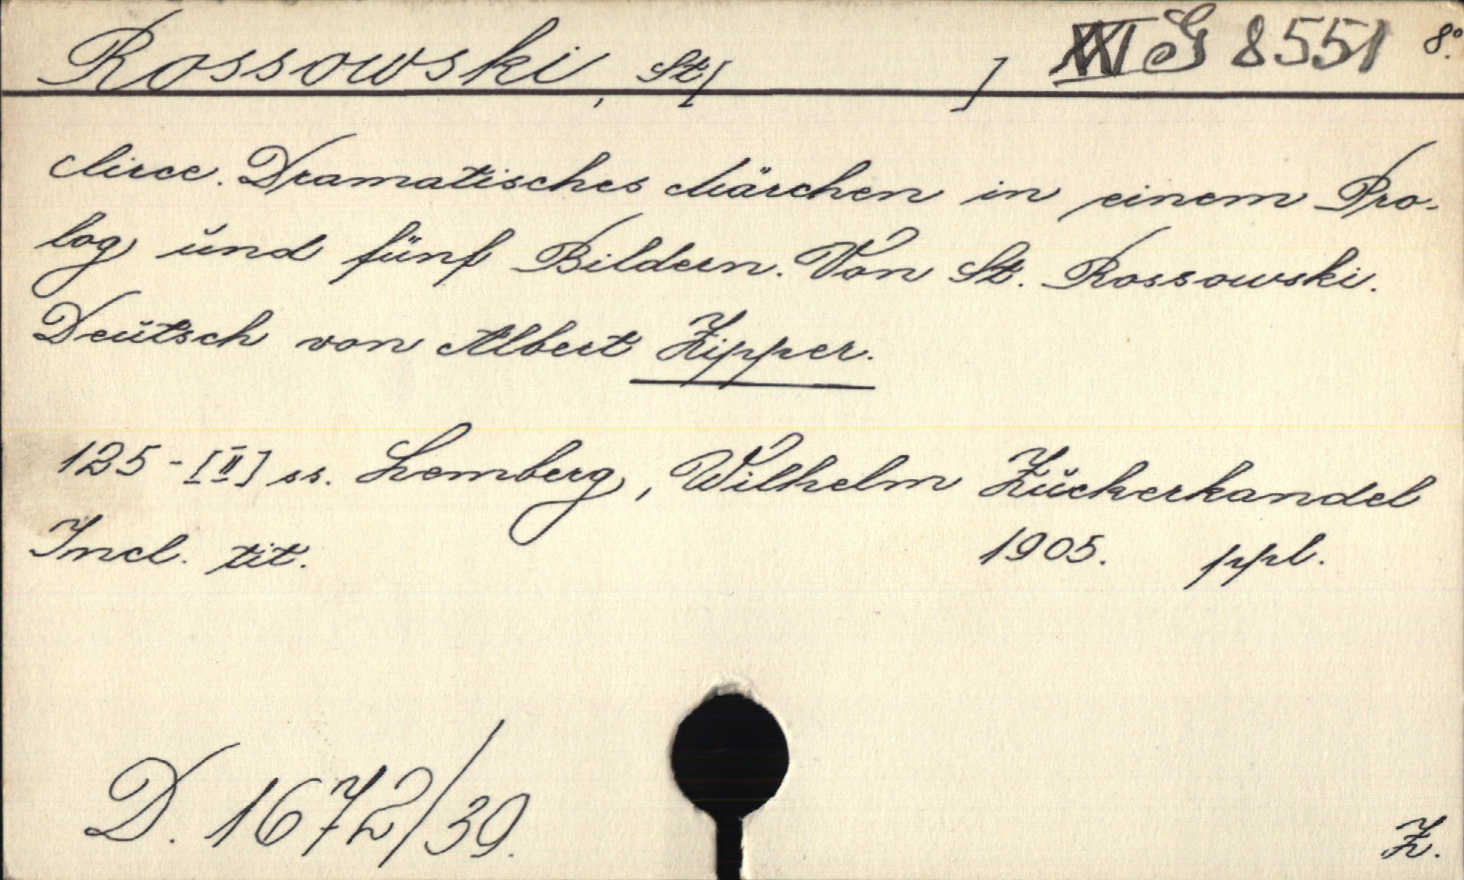 Rossowski, St[ ] XVI G 8551 8°.
Circe. Dramatisches Märchen in einem Pro-
log und fünf Bildern. Von St. Rossowski.
Deutsch von Albert Zipper.
125-[II] ss. Lemberg, Wilhelm Zuckerkandel
Incl. tit. 1905. ppl.
D. 1672/39.
Z.